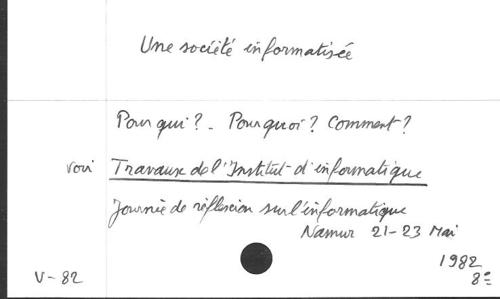 Une société informatisée
Pour qui ? - Pourquoi ? Comment ?
voir Travaux de l'Institut d'informatique
Journée de réflexion sur l'informatique
Namur 21-23 Mai
1982
V-82 8=